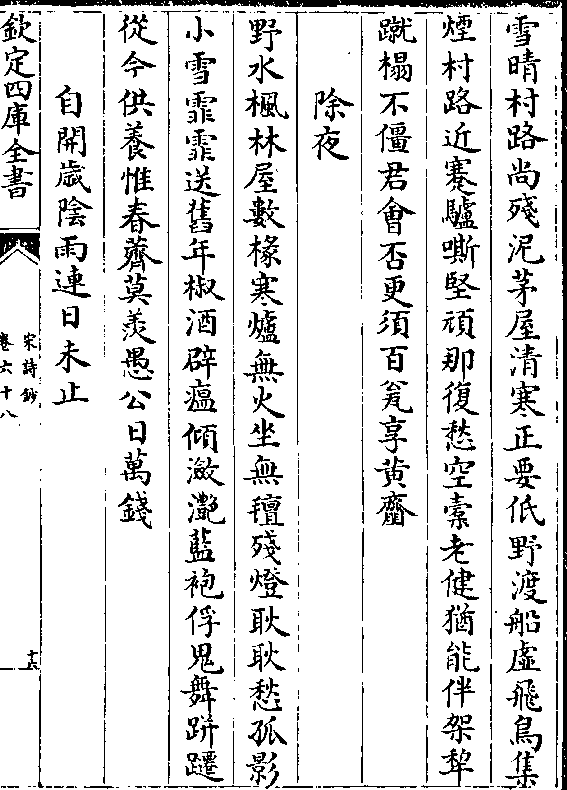 雪晴村路尚殘泥茅屋清寒正要低野渡船虛飛鳥集
煙村路近蹇驢嘶堅頑那復愁空橐老健猶能伴架犂
蹴榻不僵君會否更須百瓮享黄虀
除夜
野水楓林屋數椽寒爐無火坐無氊殘燈耿耿愁孤影
小雪霏霏送舊年椒酒辟瘟傾瀲灔藍袍俘鬼舞跰𨇤
從今供養惟春薺莫羡愚公日萬錢
自開歲陰雨連日未止
欽定四庫全書
宋詩鈔
卷六十八
十六